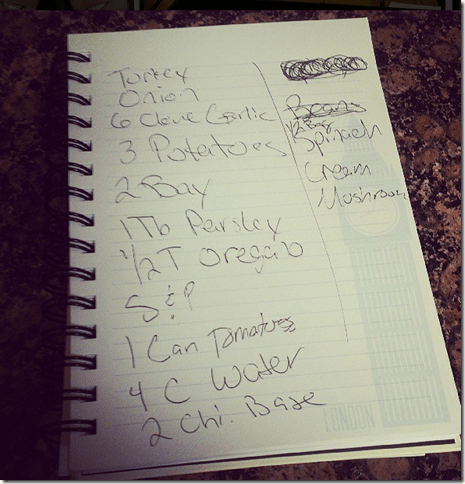 Turkey
Onion
6 Clove Garlic
3 Potertoes
2 Bay
1 Tb Persley
1/2 T Oregao
S & P
1 Can Tomatoes
4 C Water
2 Chi. Base
Beans
1/2 Bag
Spinach
Cream
Mushroom
LONDON